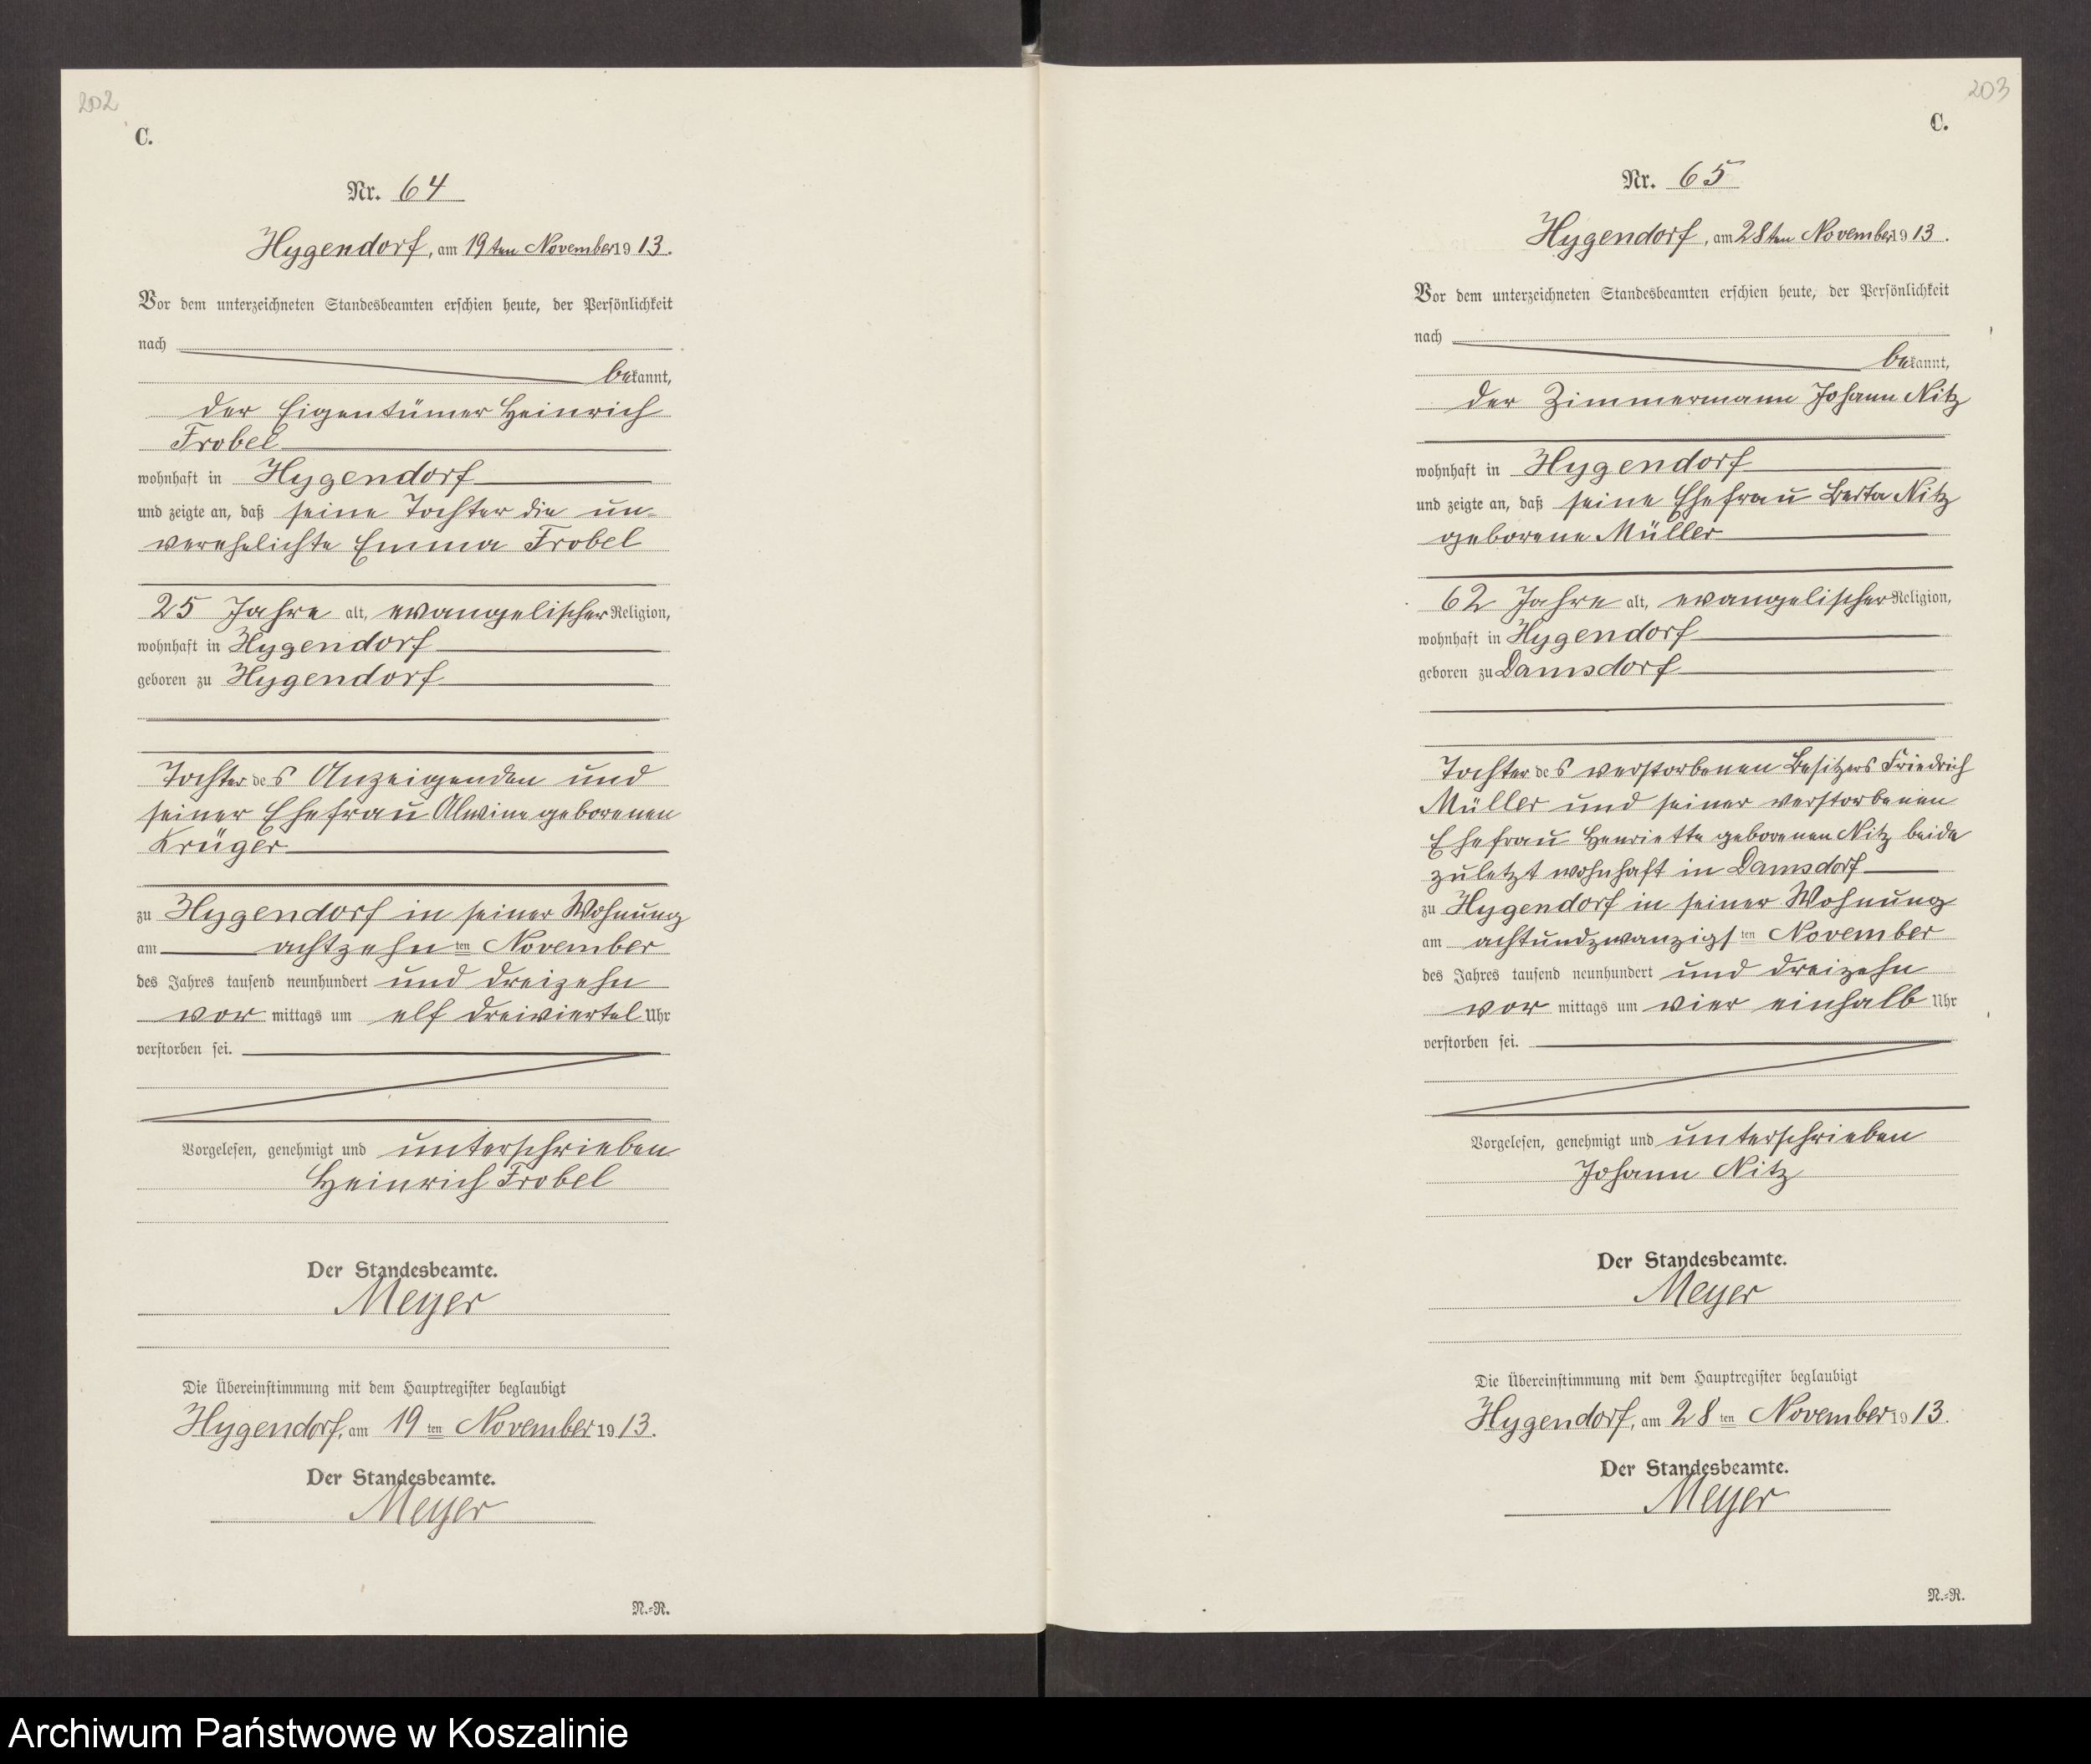 202
C.
Nr. 64
Hygendorf, am 19ten November 1913.
Vor dem unterzeichneten Standesbeamten erschien heute, der Persönlichkeit
nach
bekannt,
der Eigentümer Heinrich
Frobel
wohnhaft in Hygendorf
und zeigte an, daß seine Tochter die un-
verehelichte Emma Frobel
25 Jahre alt, evangelischer Religion,
wohnhaft in Hygendorf
geboren zu Hygendorf
Tochter des Anzeigenden und
seiner Ehefrau Alwine geborenen
Krüger
zu Hygendorf in seiner Wohnung
am achtzehnten November
des Jahres tausend neunhundert und dreizehn
vormittags um elf dreiviertel Uhr
verstorben sei.
Vorgelesen, genehmigt und unterschrieben
Heinrich Frobel
Der Standesbeamte.
Meyer
Die Übereinstimmung mit dem Hauptregister beglaubigt
Hygendorf, am 19ten November 1913.
Der Standesbeamte.
Meyer
N.-R.
203
C.
Nr. 65
Hygendorf, am 28ten November 1913.
Vor dem unterzeichneten Standesbeamten erschien heute, der Persönlichkeit
nach
bekannt,
der Zimmermann Johann Nitz
wohnhaft in Hygendorf
und zeigte an, daß seine Ehefrau Berta Nitz
geborene Müller
62 Jahre alt, evangelischer Religion,
wohnhaft in Hygendorf
geboren zu Damsdorf
Tochter des verstorbenen Besitzers Friedrich
Müller und seiner verstorbenen
Ehefrau Henriette geborenen Nitz beide
zuletzt wohnhaft in Damsdorf
zu Hygendorf in seiner Wohnung
am achtundzwanzigsten November
des Jahres tausend neunhundert und dreizehn
vormittags um vier einhalb Uhr
verstorben sei.
Vorgelesen, genehmigt und unterschrieben
Johann Nitz
Der Standesbeamte.
Meyer
Die Übereinstimmung mit dem Hauptregister beglaubigt
Hygendorf, am 28ten November 1913.
Der Standesbeamte.
Meyer
N.-R.
Archiwum Państwowe w Koszalinie